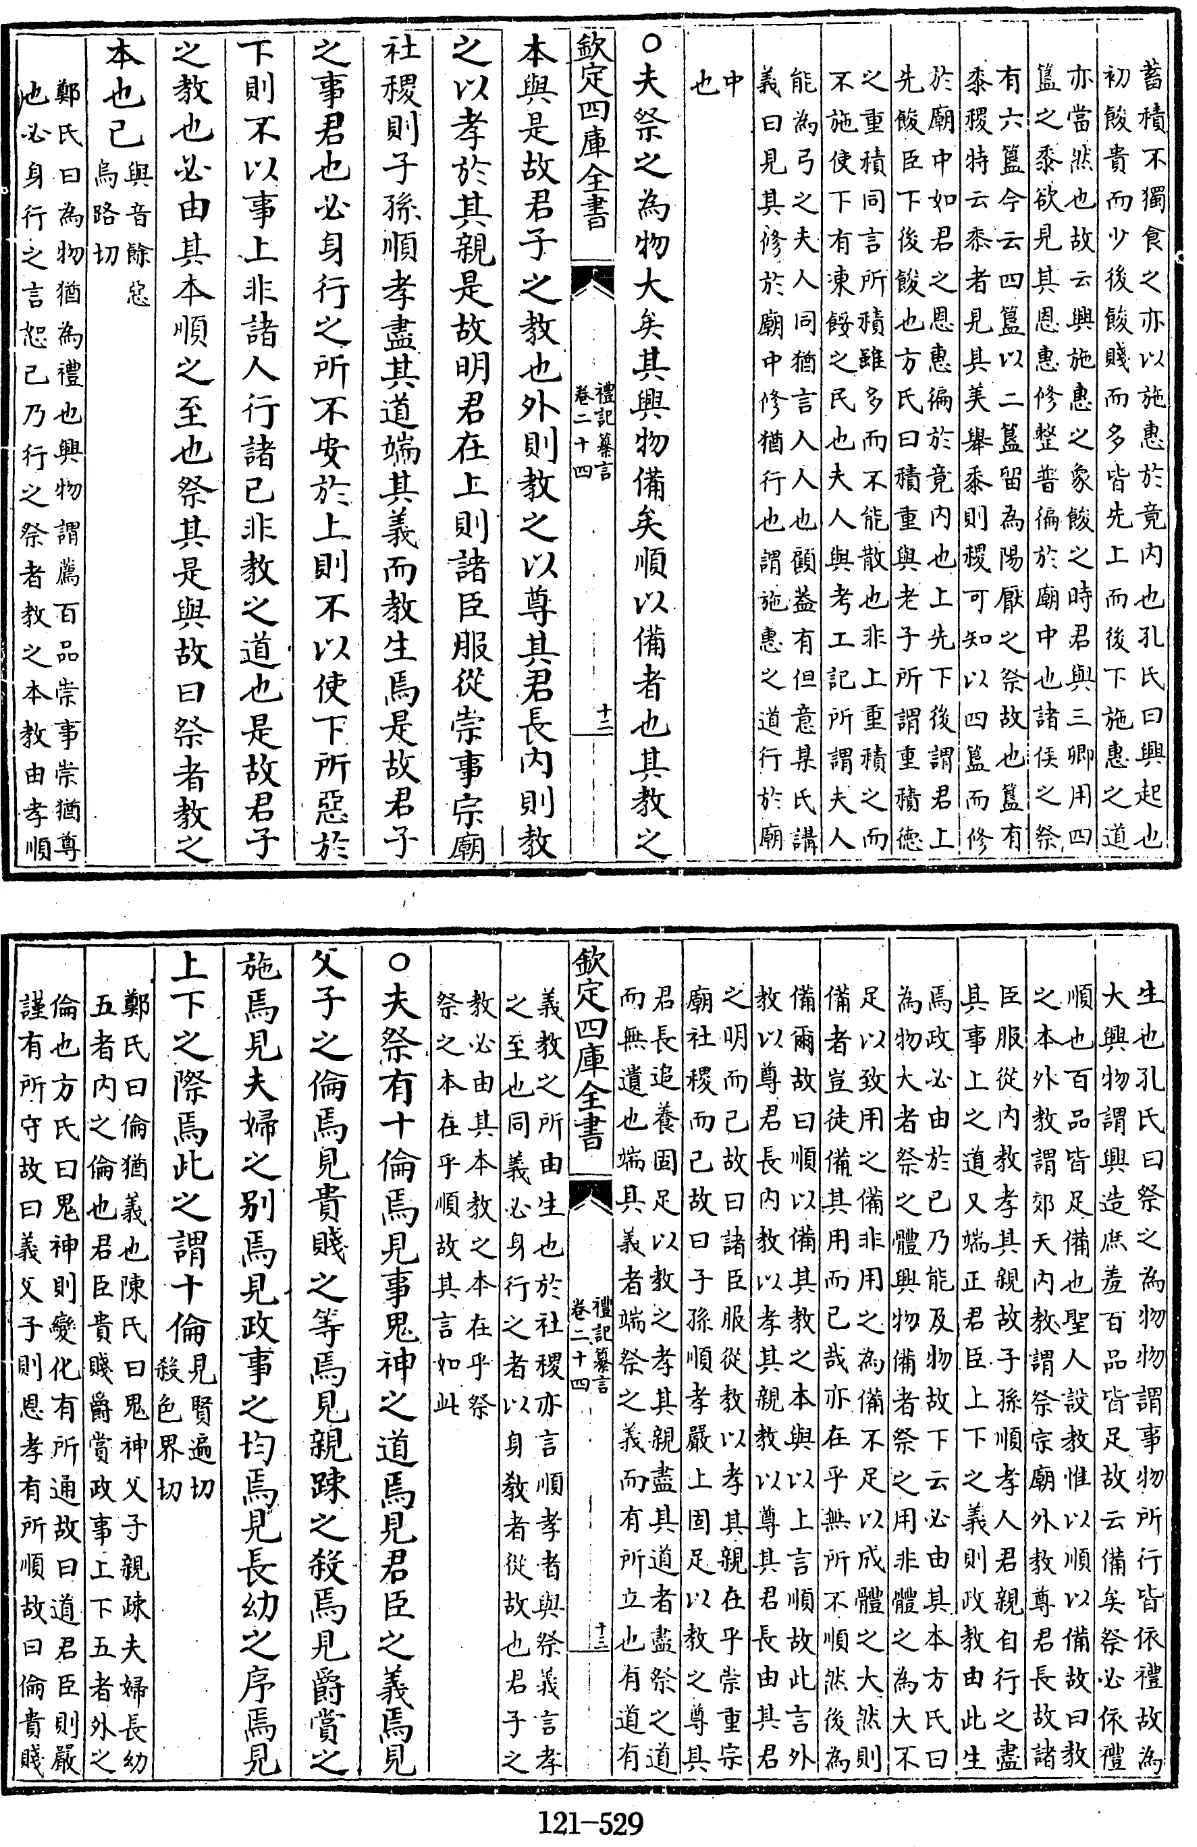 蓄積不獨食之亦以施惠於竟内也孔氏曰興起也
初餕貴而少後餕賤而多皆先上而後下施惠之道
亦當然也故云興施惠之象餕之時君與三卿用四
簋之黍欲見其恩惠修整普徧於廟中也諸侯之祭
有六簋今云四簋以二簋留為陽厭之祭故也簋有
黍稷特云黍者見其美舉黍則稷可知以四簋而修
於廟中如君之恩惠徧於竟内也上先下後謂君上
先餕臣下後餕也方氏曰積重與老子所謂重積德
之重積同言所積雖多而不能散也非上重積之而
不施使下有凍餒之民也夫人與考工記所謂夫人
能為弓之夫人同猶言人人也顧葢有但意某氏講
義曰見其修於廟中修猶行也謂施惠之道行於廟
中
也
○夫祭之為物大矣其興物備矣順以備者也其教之
欽定四庫全書
禮記纂言
卷二十四
十二
本與是故君子之教也外則教之以尊其君長内則教
之以孝於其親是故明君在上則諸臣服從崇事宗廟
社稷則子孫順孝盡其道端其義而教生焉是故君子
之事君也必身行之所不安於上則不以使下所惡於
下則不以事上非諸人行諸己非教之道也是故君子
之教也必由其本順之至也祭其是與故曰祭者教之
本也已
與音餘惡
烏路切
鄭氏曰為物猶為禮也興物謂薦百品崇事崇猶尊
也必身行之言恕己乃行之祭者教之本教由孝順
生也孔氏曰祭之為物物謂事物所行皆依禮故為
大興物謂興造庶羞百品皆足故云備矣祭必依禮
順也百品皆足備也聖人設教惟以順以備故曰教
之本外教謂郊天内教謂祭宗廟外教尊君長故諸
臣服從内教孝其親故子孫順孝人君親自行之盡
其事上之道又端正君臣上下之義則政教由此生
焉政必由於己乃能及物故下云必由其本方氏曰
為物大者祭之體興物備者祭之用非體之為大不
足以致用之備非用之為備不足以成體之大然則
備者豈徒備其用而已哉亦在乎無所不順然後為
備爾故曰順以備其教之本與以上言順故此言外
教以尊君長内教以孝其親教以尊其君長由其君
之明而已故曰諸臣服從教以孝其親在乎崇重宗
廟社稷而已故曰子孫順孝嚴上固足以教之尊其
君長追養固足以教之孝其親盡其道者盡祭之道
而無遺也端其義者端祭之義而有所立也有道有
欽定四庫全書
禮記纂言
卷二十四
十三
義教之所由生也於社稷亦言順孝者與祭義言孝
之至也同義必身行之者以身教者從故也君子之
教必由其本教之本在乎祭
祭之本在乎順故其言如此
○夫祭有十倫焉見事鬼神之道焉見君臣之義焉見
父子之倫焉見貴賤之等焉見親疎之殺焉見爵賞之
施焉見夫婦之别焉見政事之均焉見長幼之序焉見
上下之際焉此之謂十倫
見賢遍切
殺色界切
鄭氏曰倫猶義也陳氏曰鬼神父子親疎夫婦長幼
五者内之倫也君臣貴賤爵賞政事上下五者外之
倫也方氏曰鬼神則變化有所通故曰道君臣則嚴
謹有所守故曰義父子則恩孝有所順故曰倫貴賤
121-529